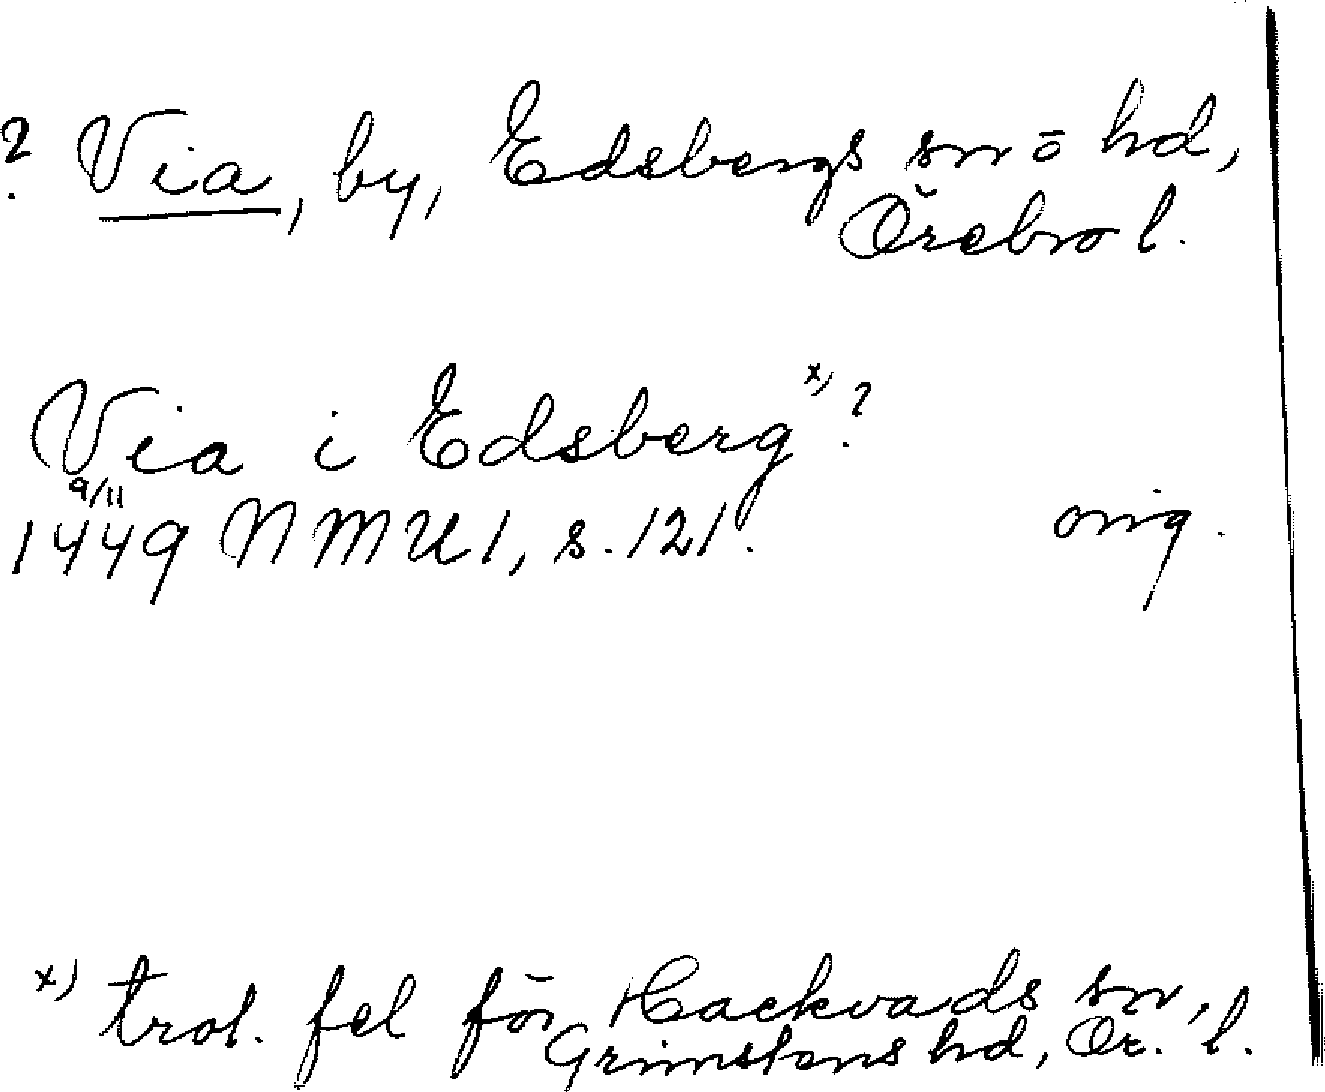 ? Via, by, Edsbergs sn ō hd,
Örebro l.
Via i Edsberg x) ?
9/11
1449 NMU1, s. 121. orig.
x) trol. fel för Hackvads sn,
Grimstens hd, Ör. l.